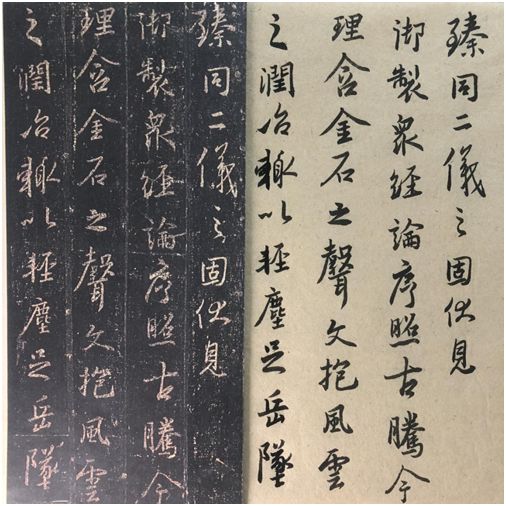 臻同二儀之固伏見
御製衆經論序照古騰今
理含金石之聲文抱風雲
之潤治輒以輕塵足岳墜
臻同二儀之固伏見
御製衆經論序照古騰今
理含金石之聲文抱風雲
之潤治輒以輕塵足岳墜